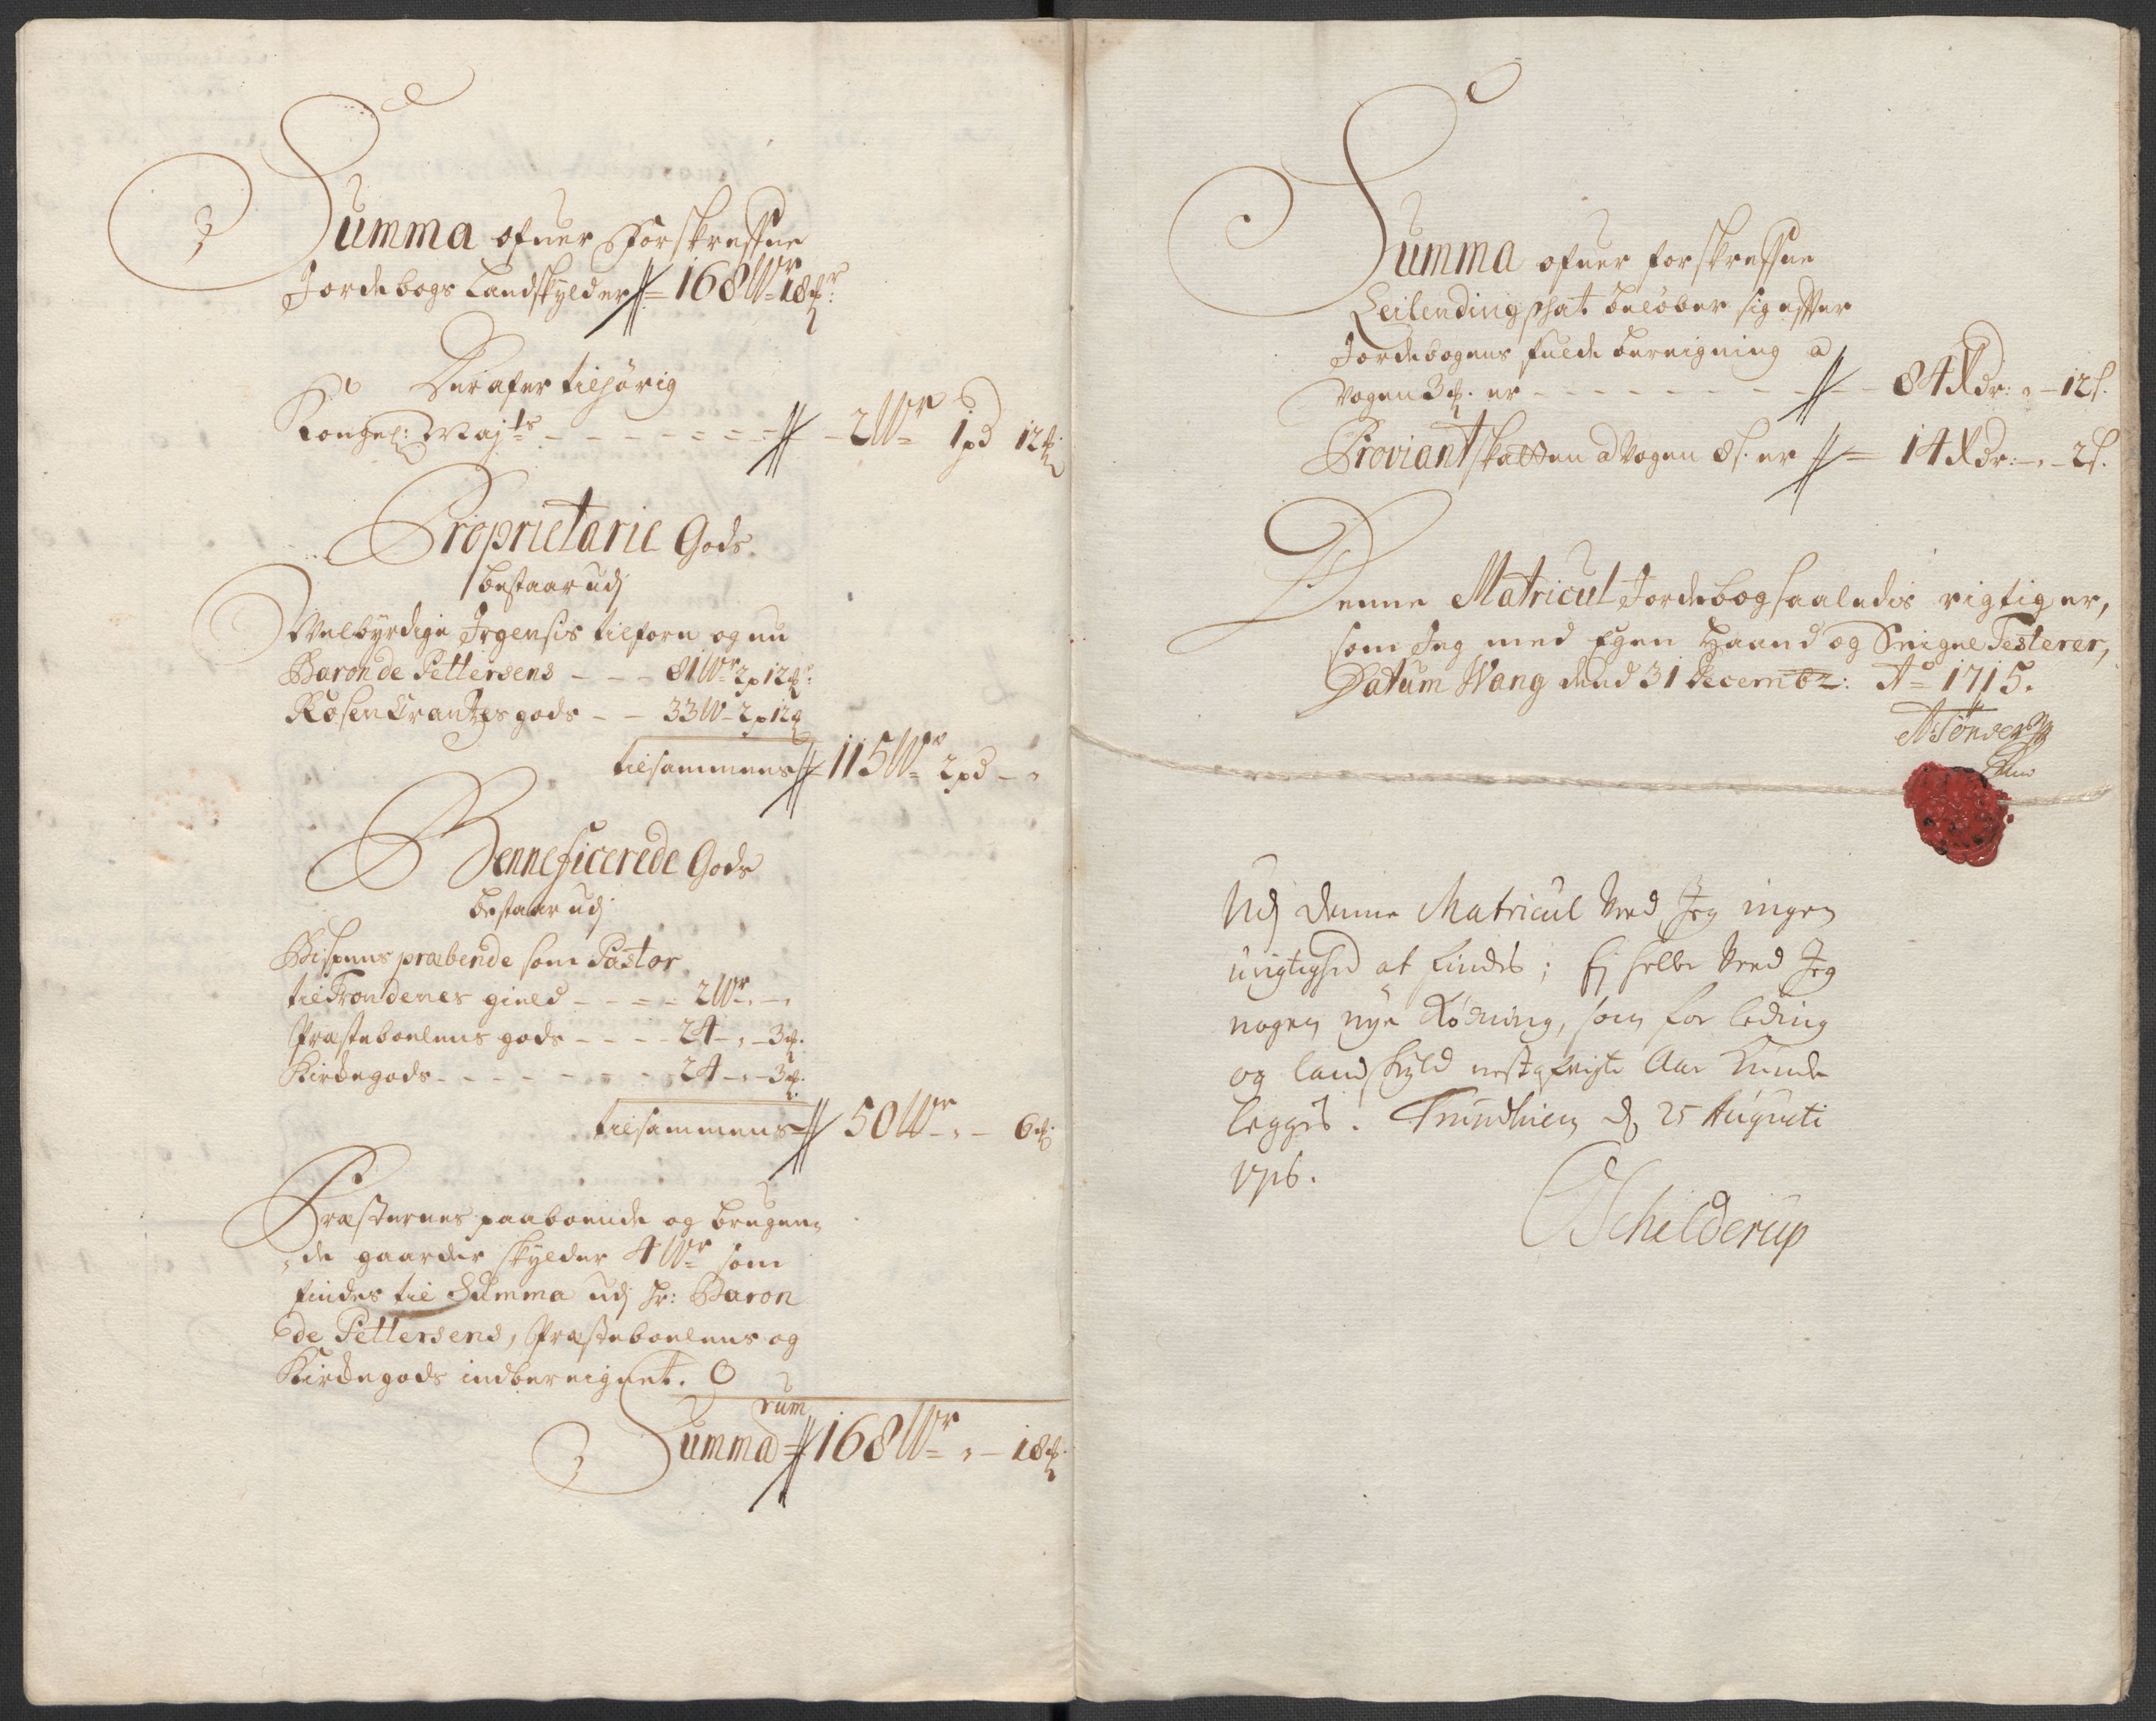 Summa ofuer Forskrefne
Jordebogs Landskylder 168 W 18 
Der afer tilhörig
Kongel: Maj:ts - - - - - - - 2 W 1 pd 12
Proprietarie Gods
bestaar udj
Welbyrdige Irgensis tilforn og nu
Baron de Pettersens - - - 81 W 2 p 12
Rosen Crantzes gods - - 33 W 2 p 12
tilsammens 115 W 2 pd - "
Benneficerede Gods
bestaar udj
Bispens præbende som Pastor
til Trondenes gield - - - - 2 W - " - "
Præsteboelens gods - - - - 24 - " - 3
Kirkegods - - - - - - - 24 - " - 3
tilsammens 50 W - " - 6
Præsternes paaboende og brugen=
=de gaarder skylder 4 W som
findes til Summa udj Hr: Baron
de Pettersens, Præsteboelens og
Kirkegods indbereignet.
Summarum 168 W " - 18
Summa ofuer forskrefne
Leilending schat beløber sig efter
Jordebogens fulde bereigning a
Vogen 3 . er - - - - - - 84 Xdr: " - 12 s.
Proviantskatten a Vogen 8 s. er 14 Xdr: - " - 2 s.
Denne Matricul Jordebog saaledis rigtig er,
som Jeg med Egen Haand og Seignet Testerer,
Datum Wang dend 31 Decembr: Ao 1715.
A Tønder
Udj denne Matricul Veed Jeg ingen
urigtighed at findes; Ej heller Veed Jeg
nogen nye Rødning, som for leding
og landskyld nestafvigte Aar kunde
leggis. Trundhiem d 25 Augusti
1716.
Schelderup